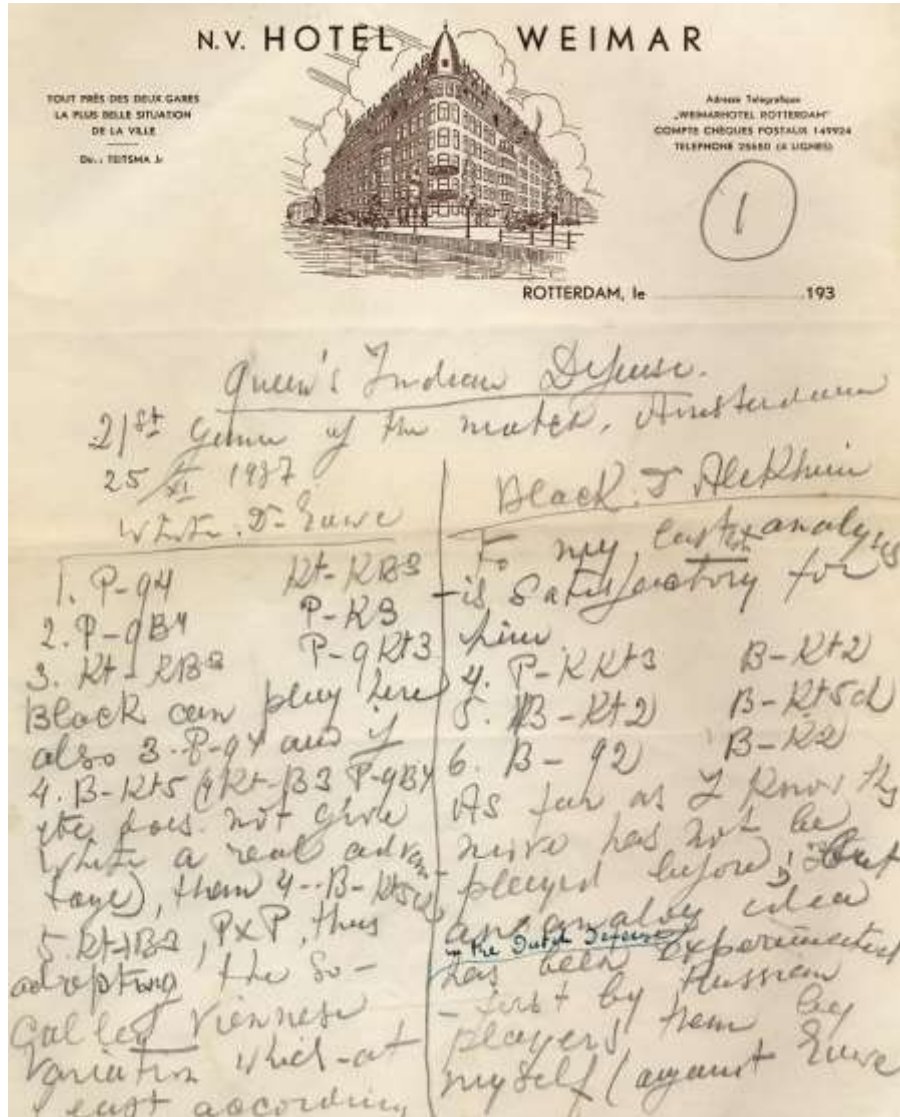 N.V. HOTEL WEIMAR
TOUT PRÈS DES DEUX GARES
LA PLUS BELLE SITUATION
DE LA VILLE
Dir.: TEITSMA Jr
Adresse Telegrafique
„WEIMARHOTEL ROTTERDAM"
COMPTE CHÈQUES POSTAUX 149924
TELEPHONE 25680 (4 LIGNES)
1
HOTEL
ROTTERDAM, le 193
Queen's Indian Defense.
21st Game of the match, Amsterdam
25/XI 1937
White: Dr Euwe
1. P-q4 Kt-KB3
2. P-qB4 P-K3
3. Kt-KB3 P-qKt3
Black can play here
also 3-P-q4 and if
4. B-Kt5 (4Kt-B3 P-qB4
does not give
White a real advan-
tage), then 4--B-Kt5
5. Kt-B3, PxP, thus
adopting the so-
called Viennese
variation which-at
least according
Black: Dr Alekhin
To my, last analyses
-is satisfactory for
him
4. P-KKt3 B-Kt2
5. B-Kt2 B-Kt5
6. B-q2 B-K2
As far as I know this
move has not be
played before, but
an analog idea
in the Dutch Defense
has been experimented
-first by Russian
players then by
myself (against Euwe